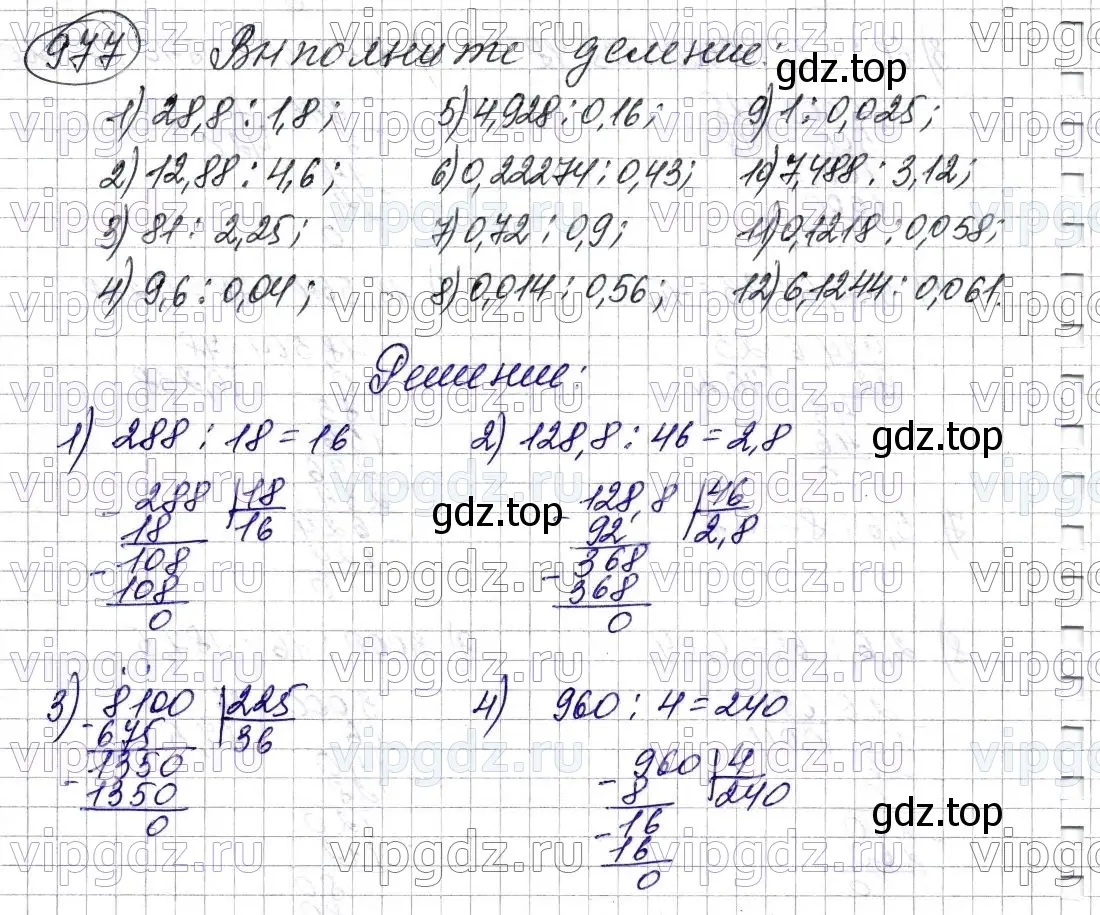 977 Выполните деление:
1) 28,8 : 1,8; 5) 4,928 : 0,16; 9) 1 : 0,025;
2) 12,88 : 4,6; 6) 0,22274 : 0,43; 10) 7,488 : 3,12;
3) 81 : 2,25; 7) 0,72 : 0,9; 11) 0,1218 : 0,058;
4) 9,6 : 0,04; 8) 0,014 : 0,56; 12) 6,1244 : 0,061.
Решение:
1) 288 : 18 = 16 2) 128,8 : 46 = 2,8
288 18 128,8 46
18 16 92 2,8
108 368
108 368
0 0
3) 8100 225 4) 960 : 4 = 240
675 36
1350 960 4
1350 8 240
0 16
16
0
gdz.top
gdz.top
gdz.top
gdz.top
vipgdz.ru